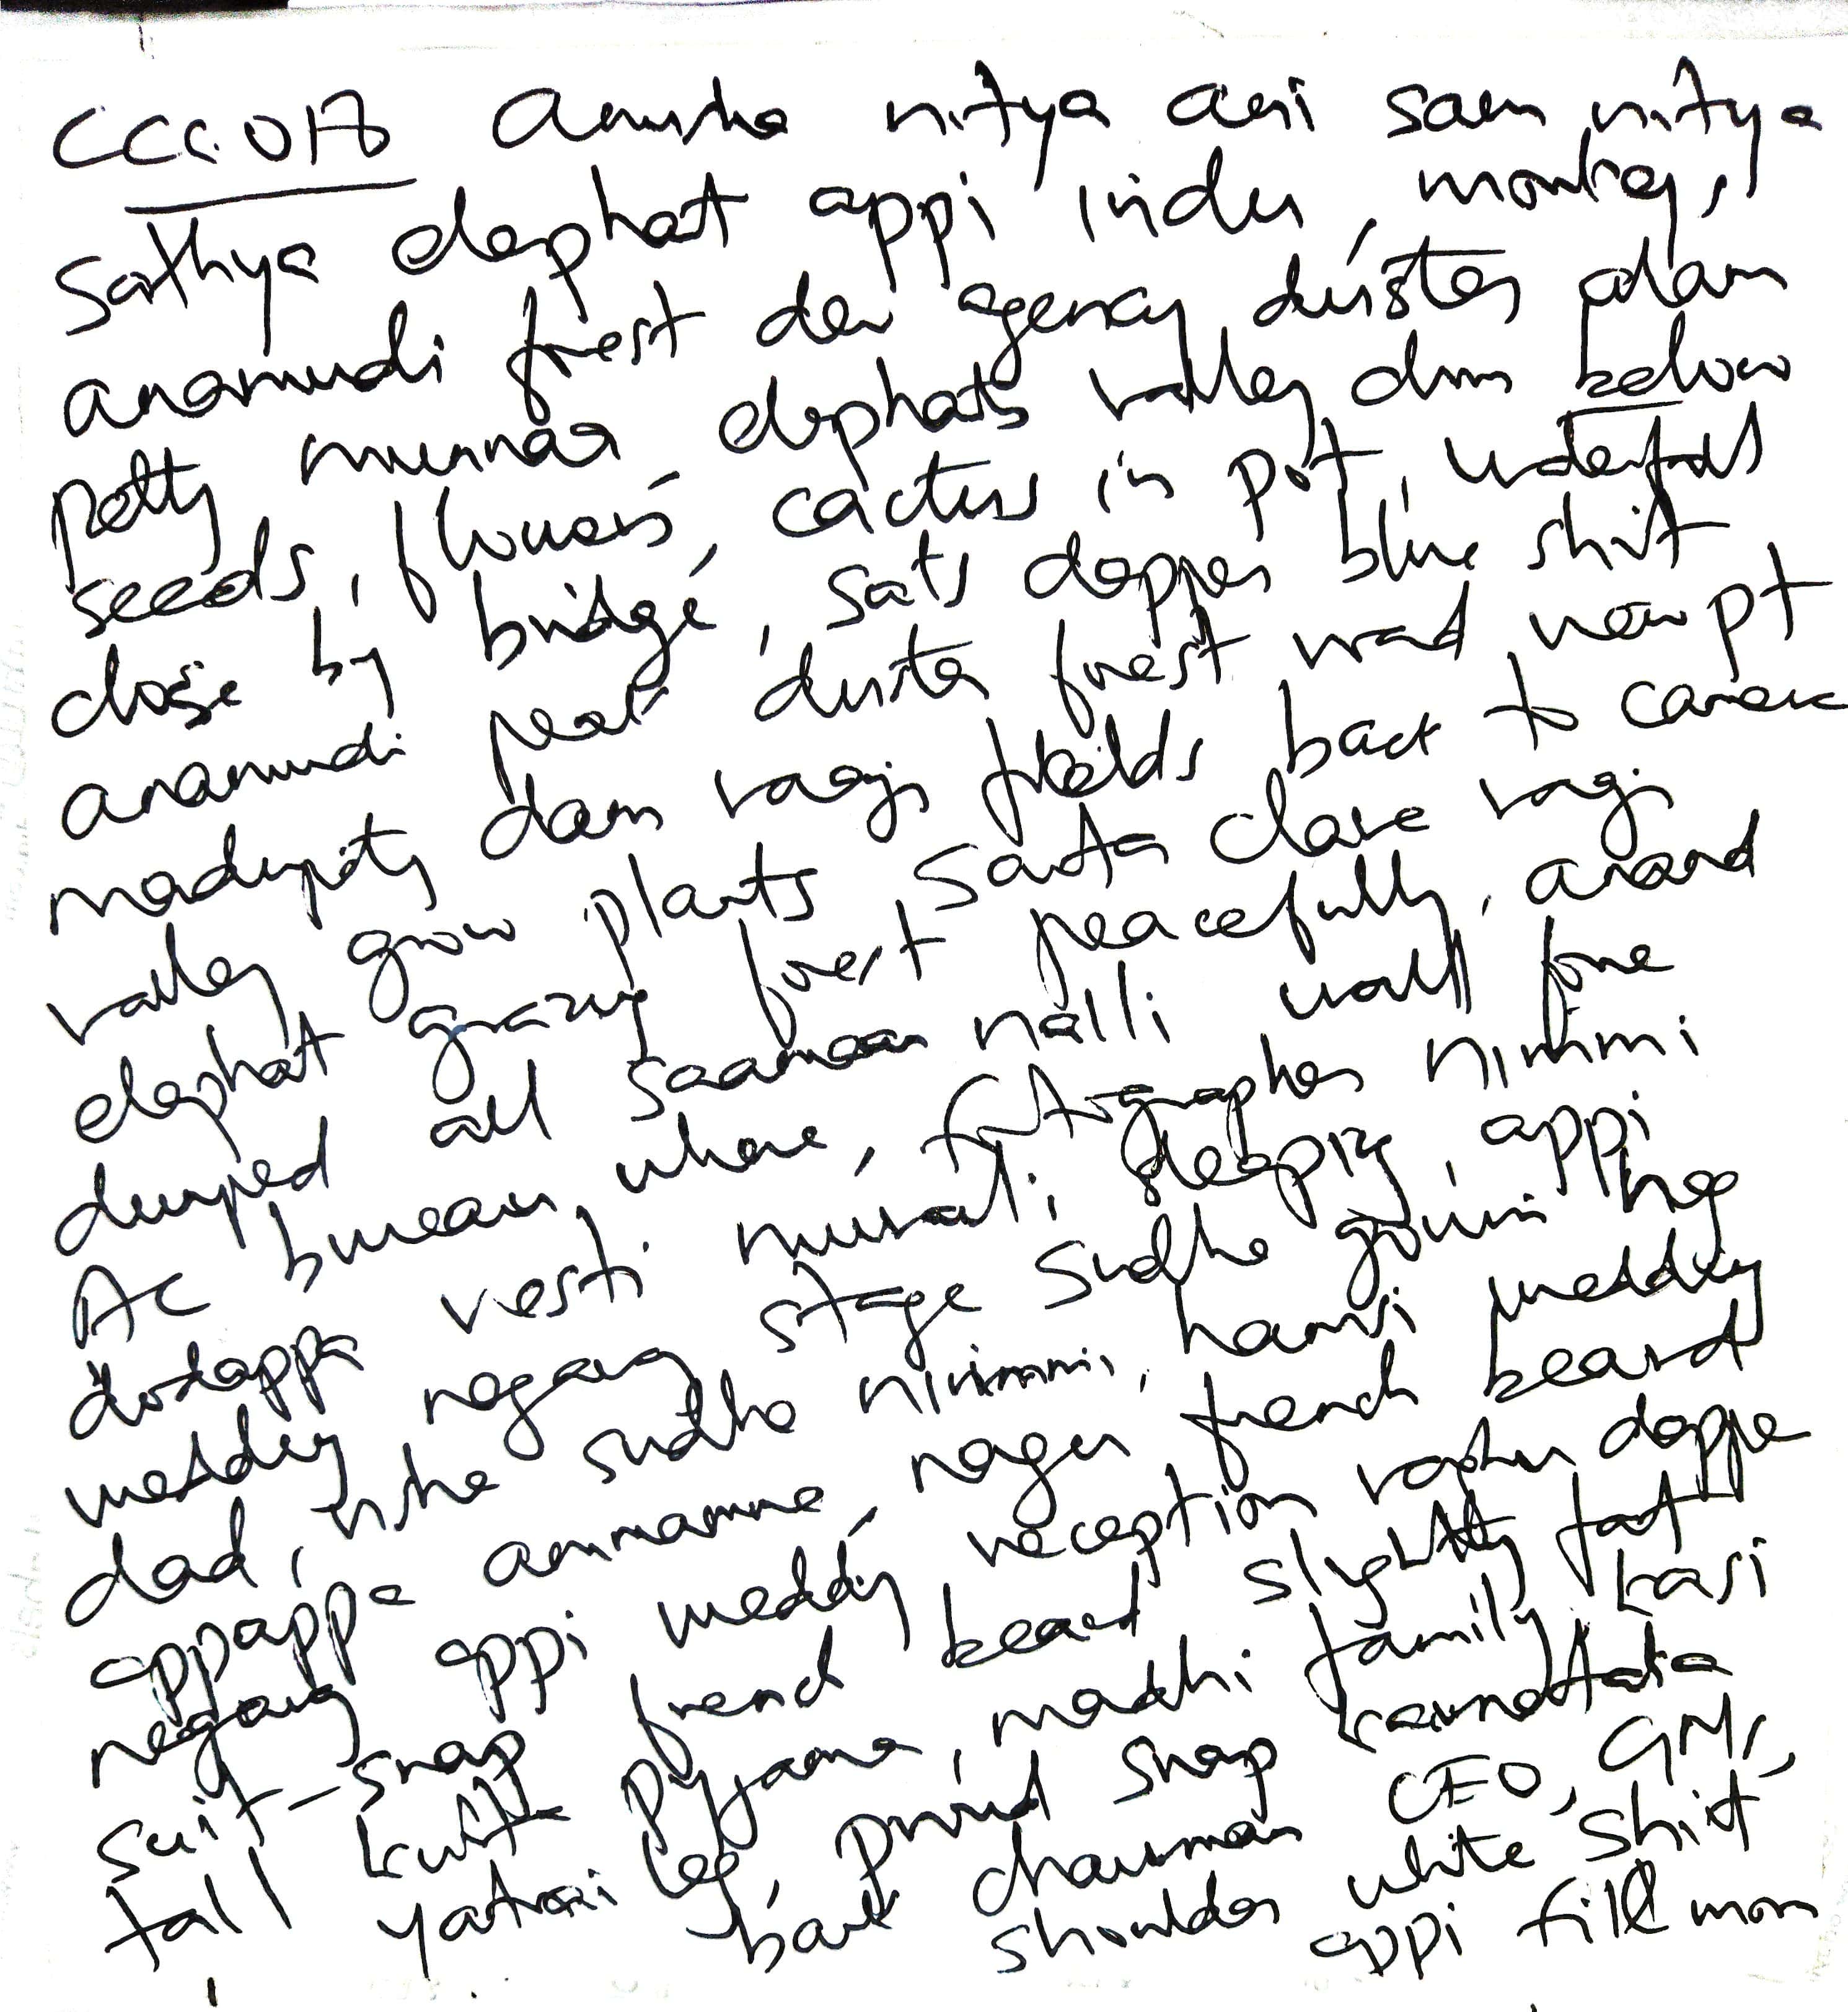 anusha nitya sam nitya
Sathya elephant appi indu, monkeys,
anamudi forest dev agency, duster dam
petty munnar elephants valley dam below
seeds, flowers, cactus in pot, waterfalls
close by bridge, sats doppa blue shirt
anamudi peak duster forest road, view pt
madupity dam ragi fields back to
valley grow plants Santa Clara ragi
elephant grazing forest peacefully, anand
dumped all saamaan nalli wall fone
AC bureau, where, fotographer nimmi
dodappa vesti murali, sleeping, appi
wedding negang stage sudha gowri hge
dad, isha sudha nimmi, hansi wedding
appappa ammamma, nagu french beard
negang appi wedding reception raghu doppa
suit-snap french beard slightly fat
tall kutta Pyjama, madhi family kasi
yatrai leg proud snap karnataka
bank chairman CEO, GM,
shoulder white shirt
appi fill mom